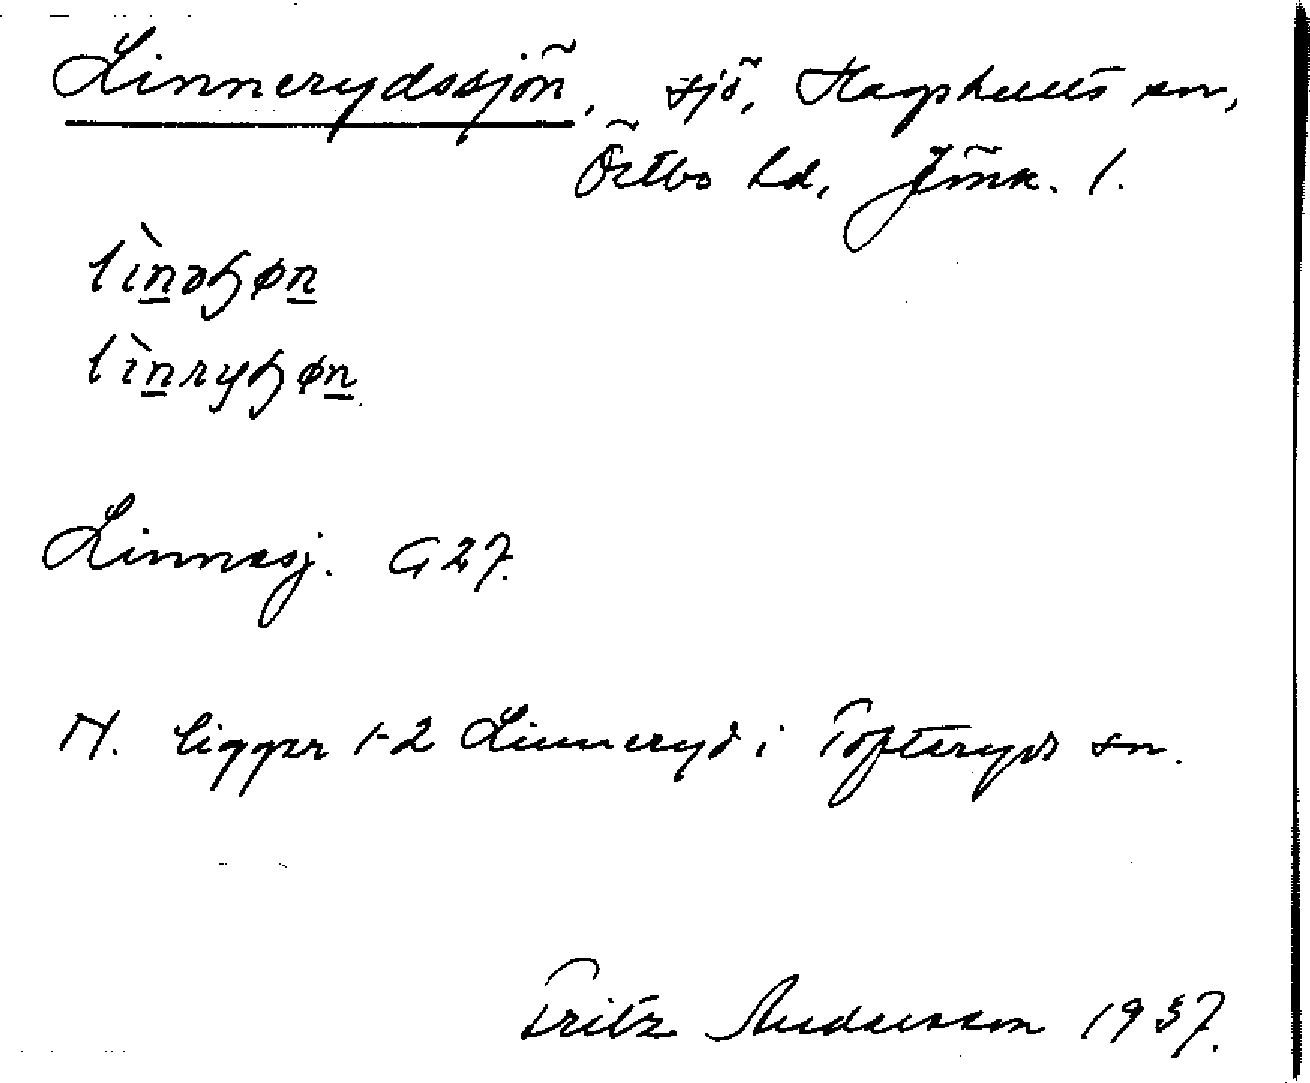 Linnerydssjön, sjö, Hagshults sn,
Östbo hd, Jönk. l.
lìnəɧøn
lìnryɧøn
Linnesj. G 27.
N. ligger 1-2 Linneryd i Tofteryds sn.
Fritz Andersson 1937.